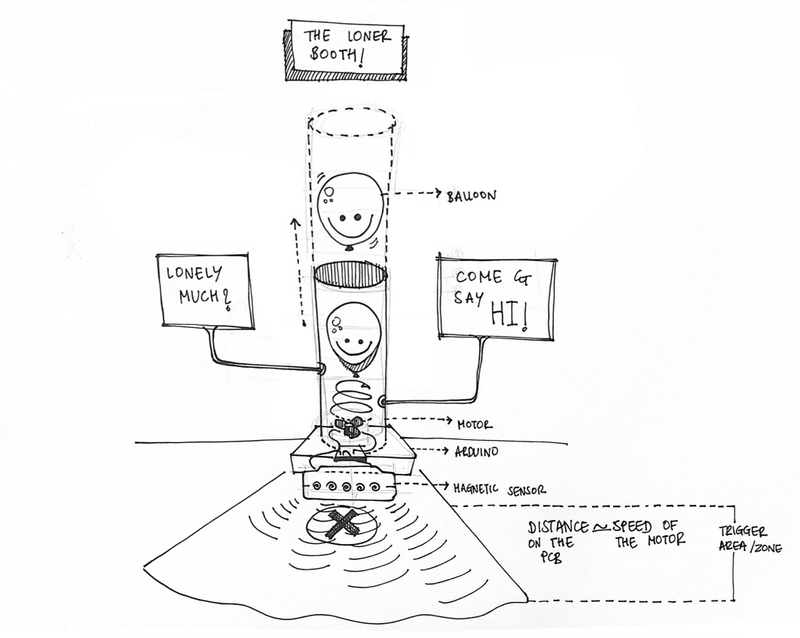 THE LONER
BOOTH!
BALLOON
LONELY
MUCH?
COME &
SAY HI!
MOTOR
ARDUINO
MAGNETIC SENSOR
DISTANCE ~ SPEED OF
ON THE THE MOTOR
PCB
TRIGGER
AREA/ZONE